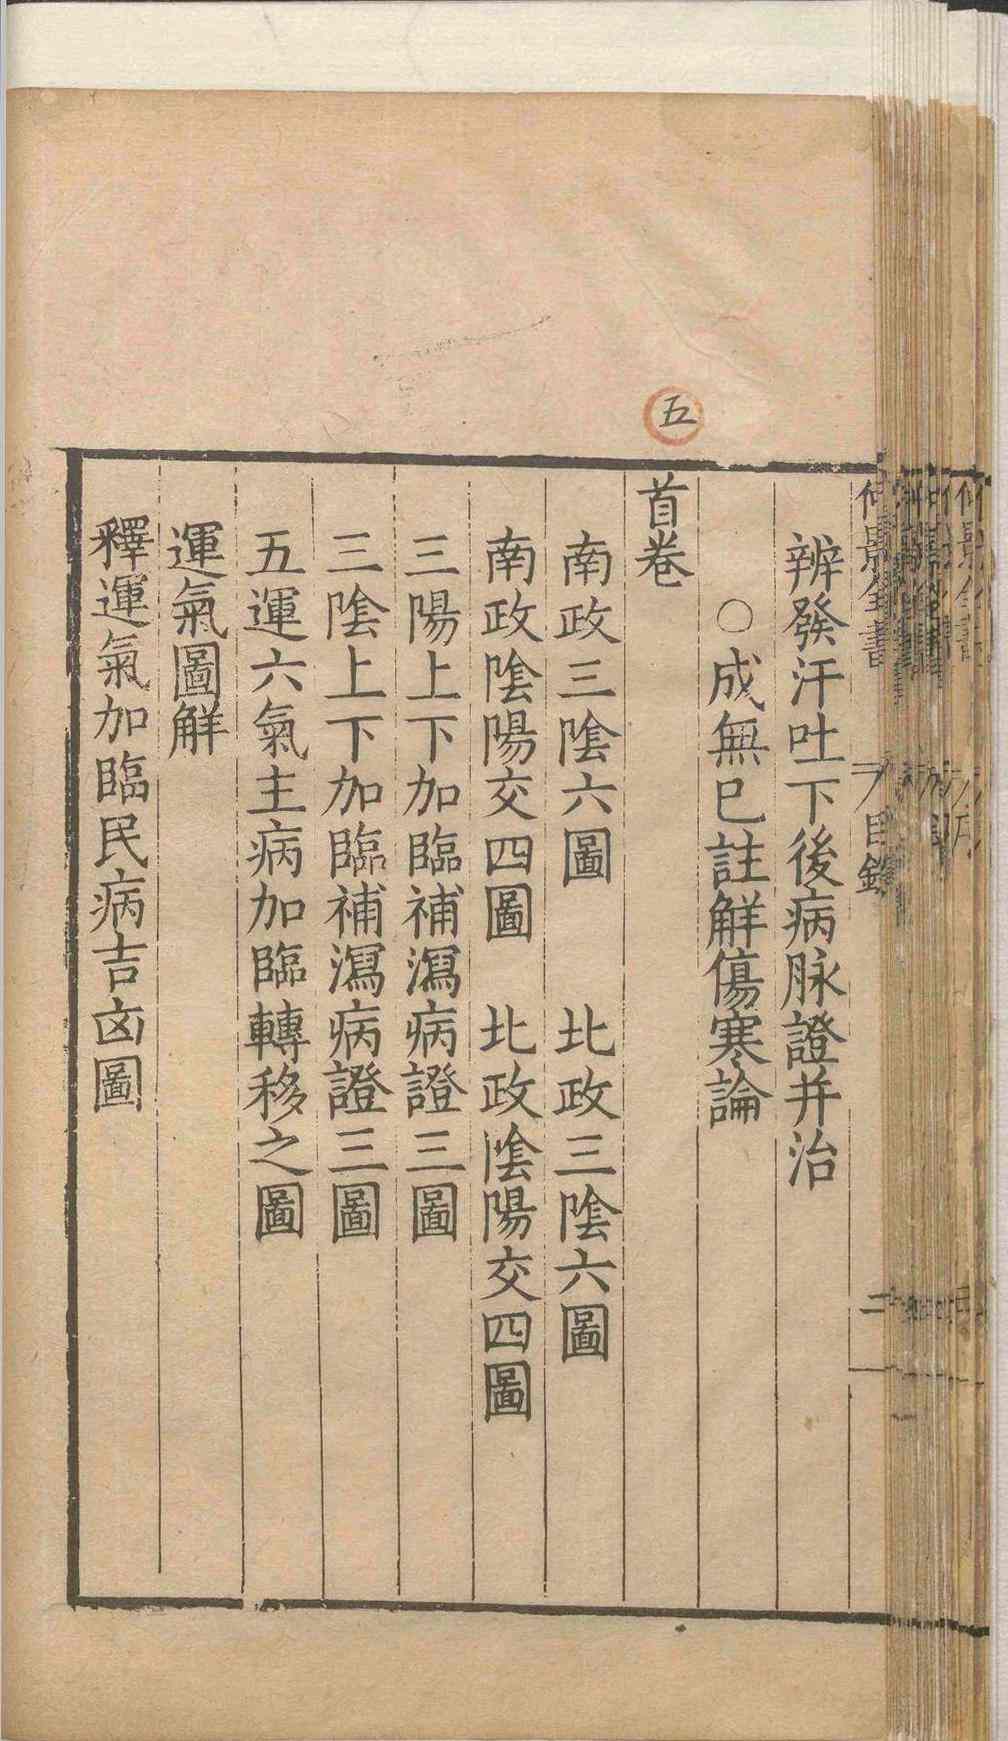 五
仲景全書 目錄 二
辨發汗吐下後病脉證并治
○成無已註解傷寒論
首卷
南政三陰六圖 北政三陰六圖
南政陰陽交四圖 北政陰陽交四圖
三陽上下加臨補瀉病證三圖
三陰上下加臨補瀉病證三圖
五運六氣主病加臨轉移之圖
運氣圖解
釋運氣加臨民病吉凶圖